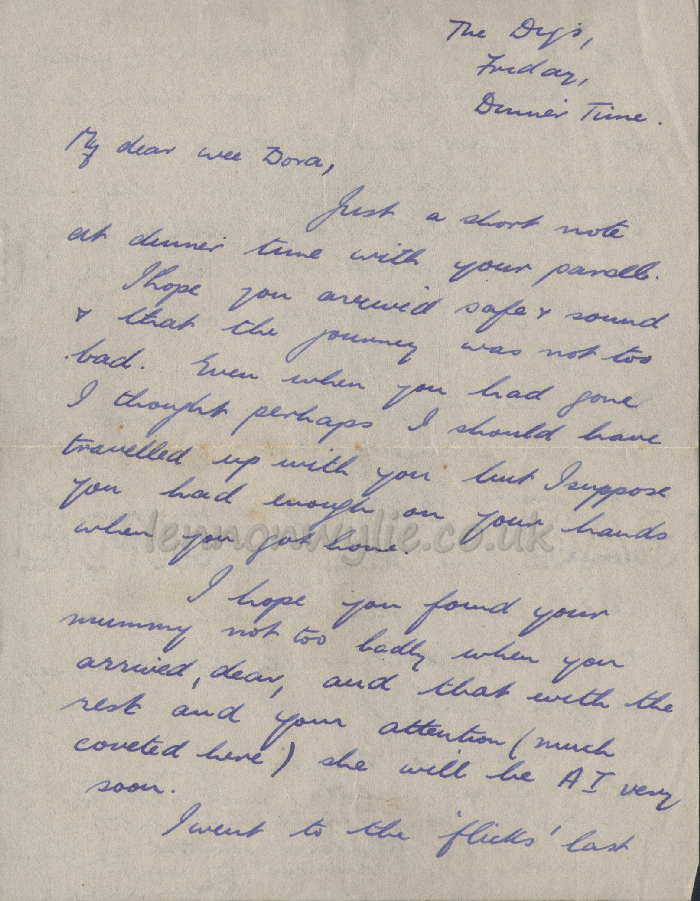 The Digs,
Friday,
Dinner Time.
My dear wee Dora,
Just a short note
at dinner time with your parcels.
I hope you arrived safe & sound
& that the journey was not too
bad. Even when you had gone
I thought perhaps I should have
travelled up with you but I suppose
you had enough on your hands
when you got home.
lennonwylie.co.uk
I hope you found your
mummy not too badly when you
arrived, dear, and that with the
rest and your attention (much
coveted here) she will be A I very
soon.
I went to the 'flicks' last